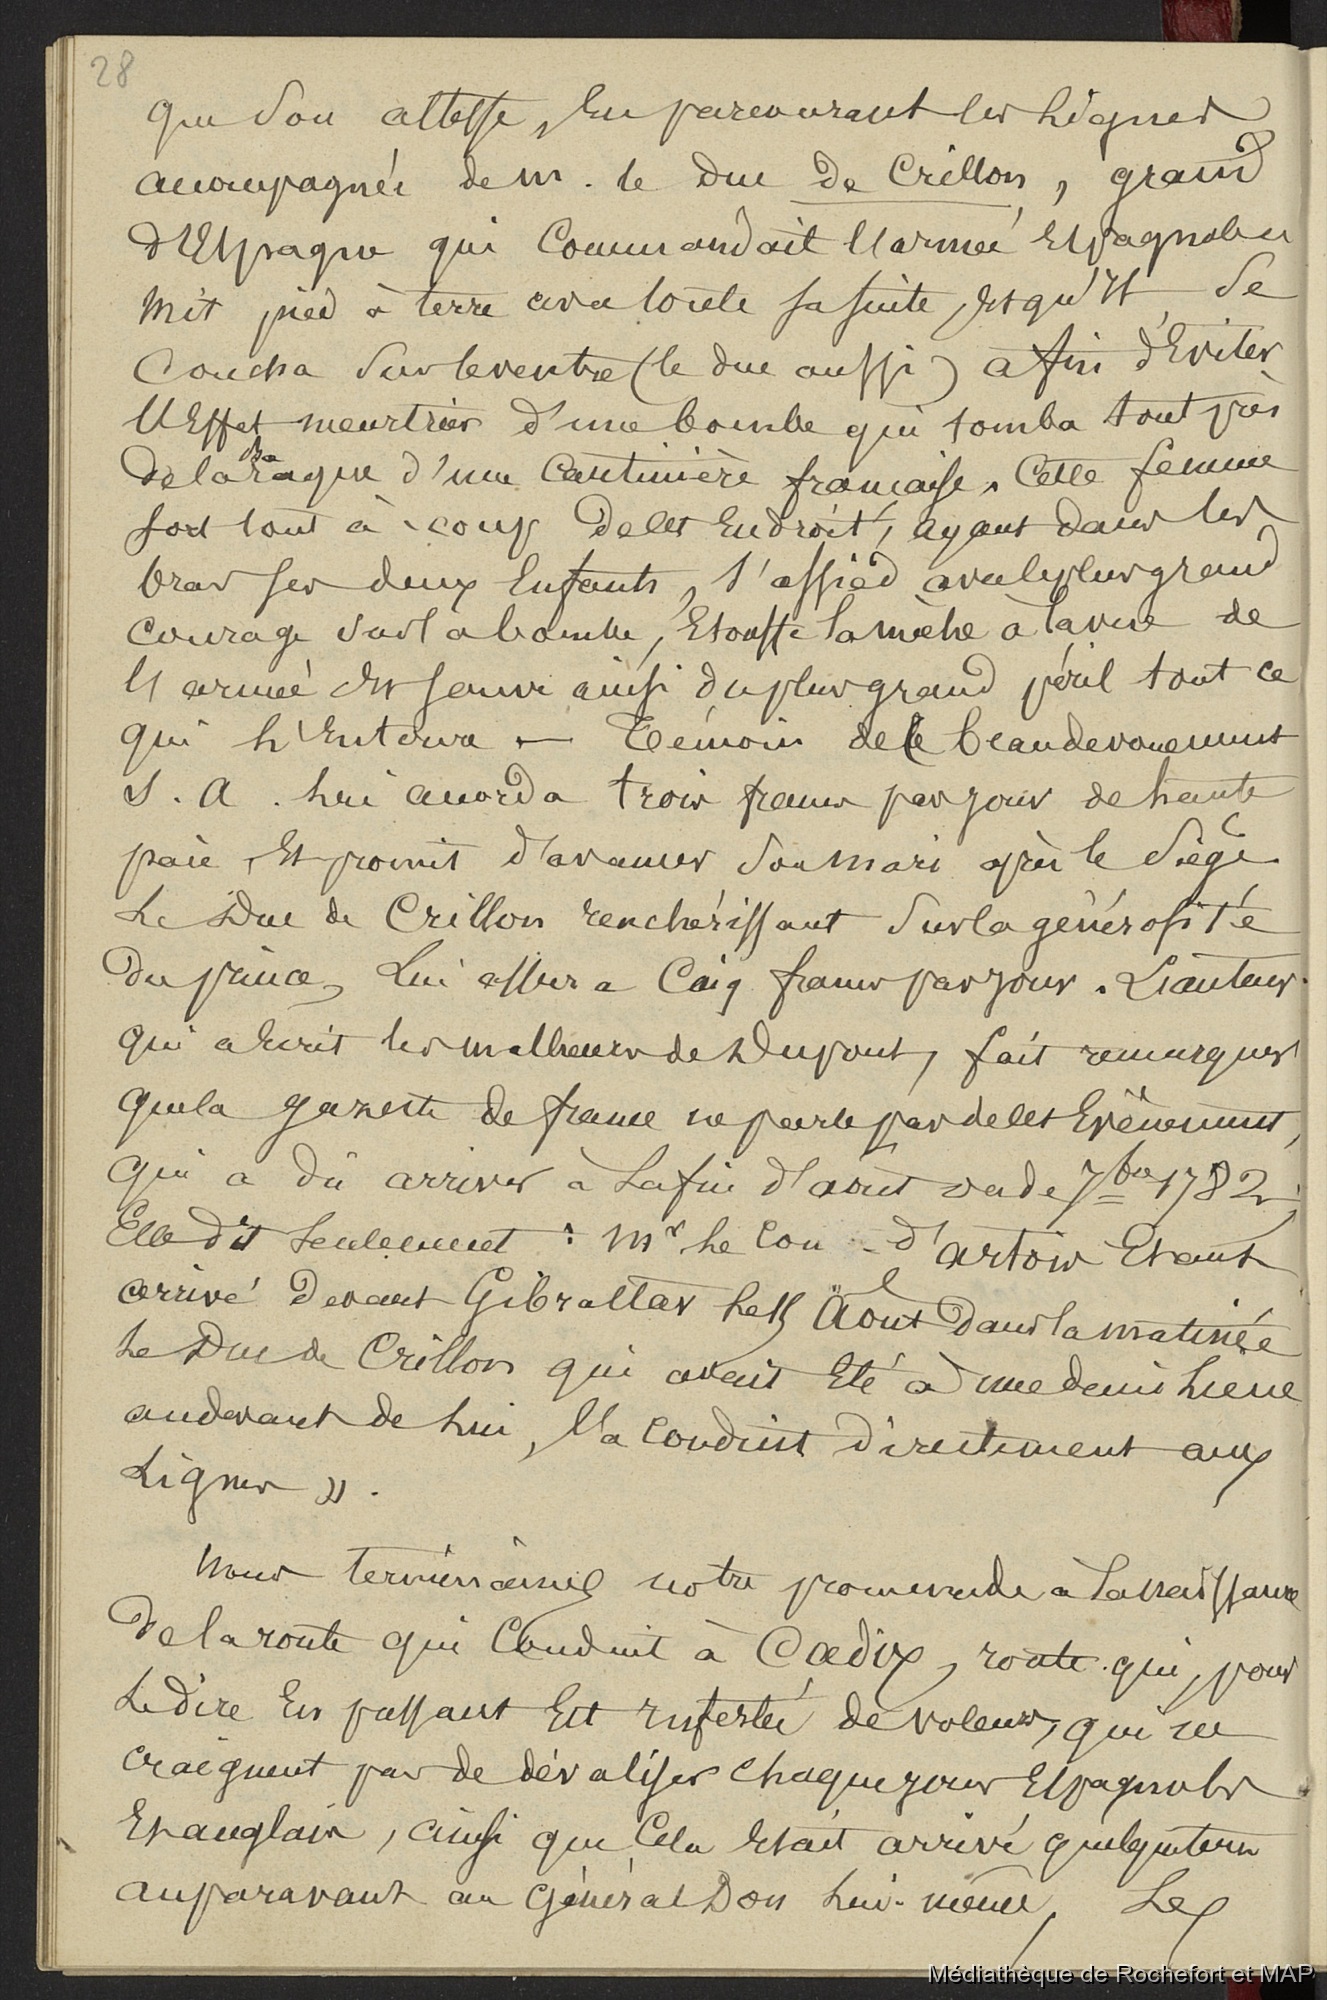 28
que Son altesse, En parcourant les Lignes
accompagnée de m. le Duc de Crillon, grand
d'Espagne qui Commandait l'armée Espagnole
mit pied à terre avec toute sa suite, Et qu'il Se
Coucha Sur le ventre (le duc aussi) afin d'Eviter
l'Effet meurtrier d'une bombe qui tomba tout près
de la baraque d'une Cantinière française. Cette femme
sort tout à coup de cet Endroit, ayant dans les
bras ses deux Enfants, s'assied avec le plus grand
Courage Sur la bombe, Etouffe la mèche à la vue de
l'armée Et sauve ainsi du plus grand péril tout ce
qui l'Entoura — Témoin de ce beau devouement
S. A. lui accorda trois francs par jour de haute
paie, Et promit d'avancer Son mari après le Siège.
Le Duc de Crillon renchérissant Sur la générosité
du prince, Lui assura Cinq francs par jour. L'auteur
qui a écrit les malheurs de Dupont, fait remarquer
que la gazette de france ne parle pas de cet Evènement,
qui a dû arriver à La fin d'août de 7bre 1782,
Elle dit Seulement : Mr le Con d'artois Etant
arrivé devant Gibraltar le 15 Août dans la matinée
Le Duc de Crillon qui avait Eté à une demi Lieue
au devant de Lui, l'a conduit directement aux
Lignes ».
Nous terminâmes notre promenade à La naissance
de la route qui Conduit à Cadix, route qui, pour
Le dire En passant Est infestée de voleurs, qui ne
craignent pas de dévaliser chaque jour Espagnols
Et anglais, ainsi que Cela Etait arrivé quelque tems
auparavant au Général Don Lui-même, Les
Médiathèque de Rochefort et MAP